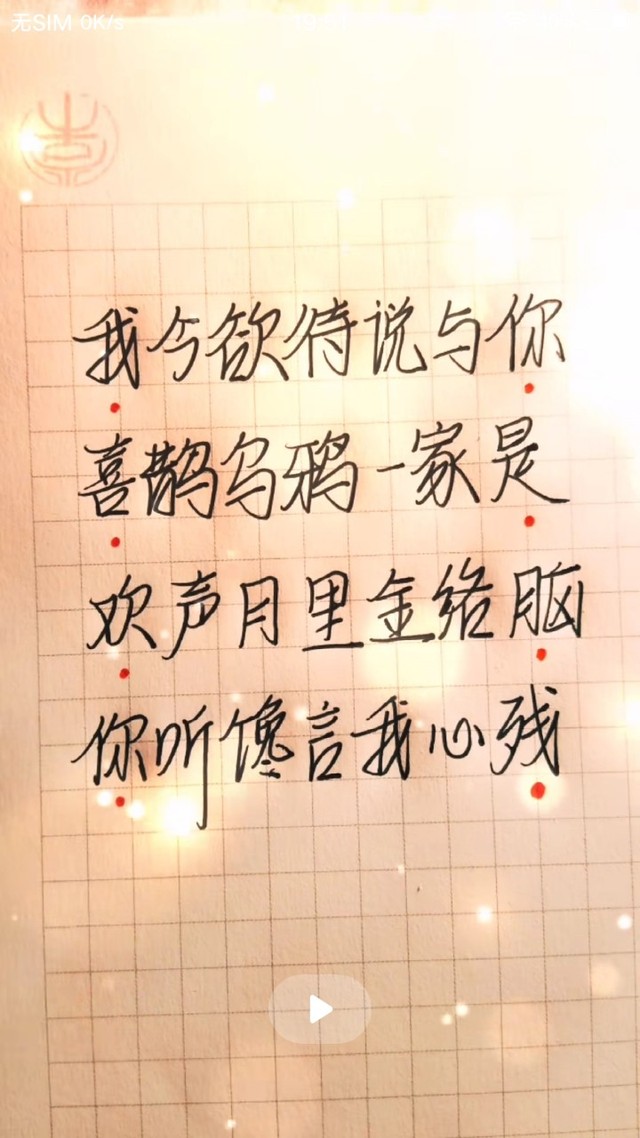 无SIM 0K/s
我今欲待说与你
喜鹊乌鸦一家是
欢声月里金络脑
你听馋言我心残